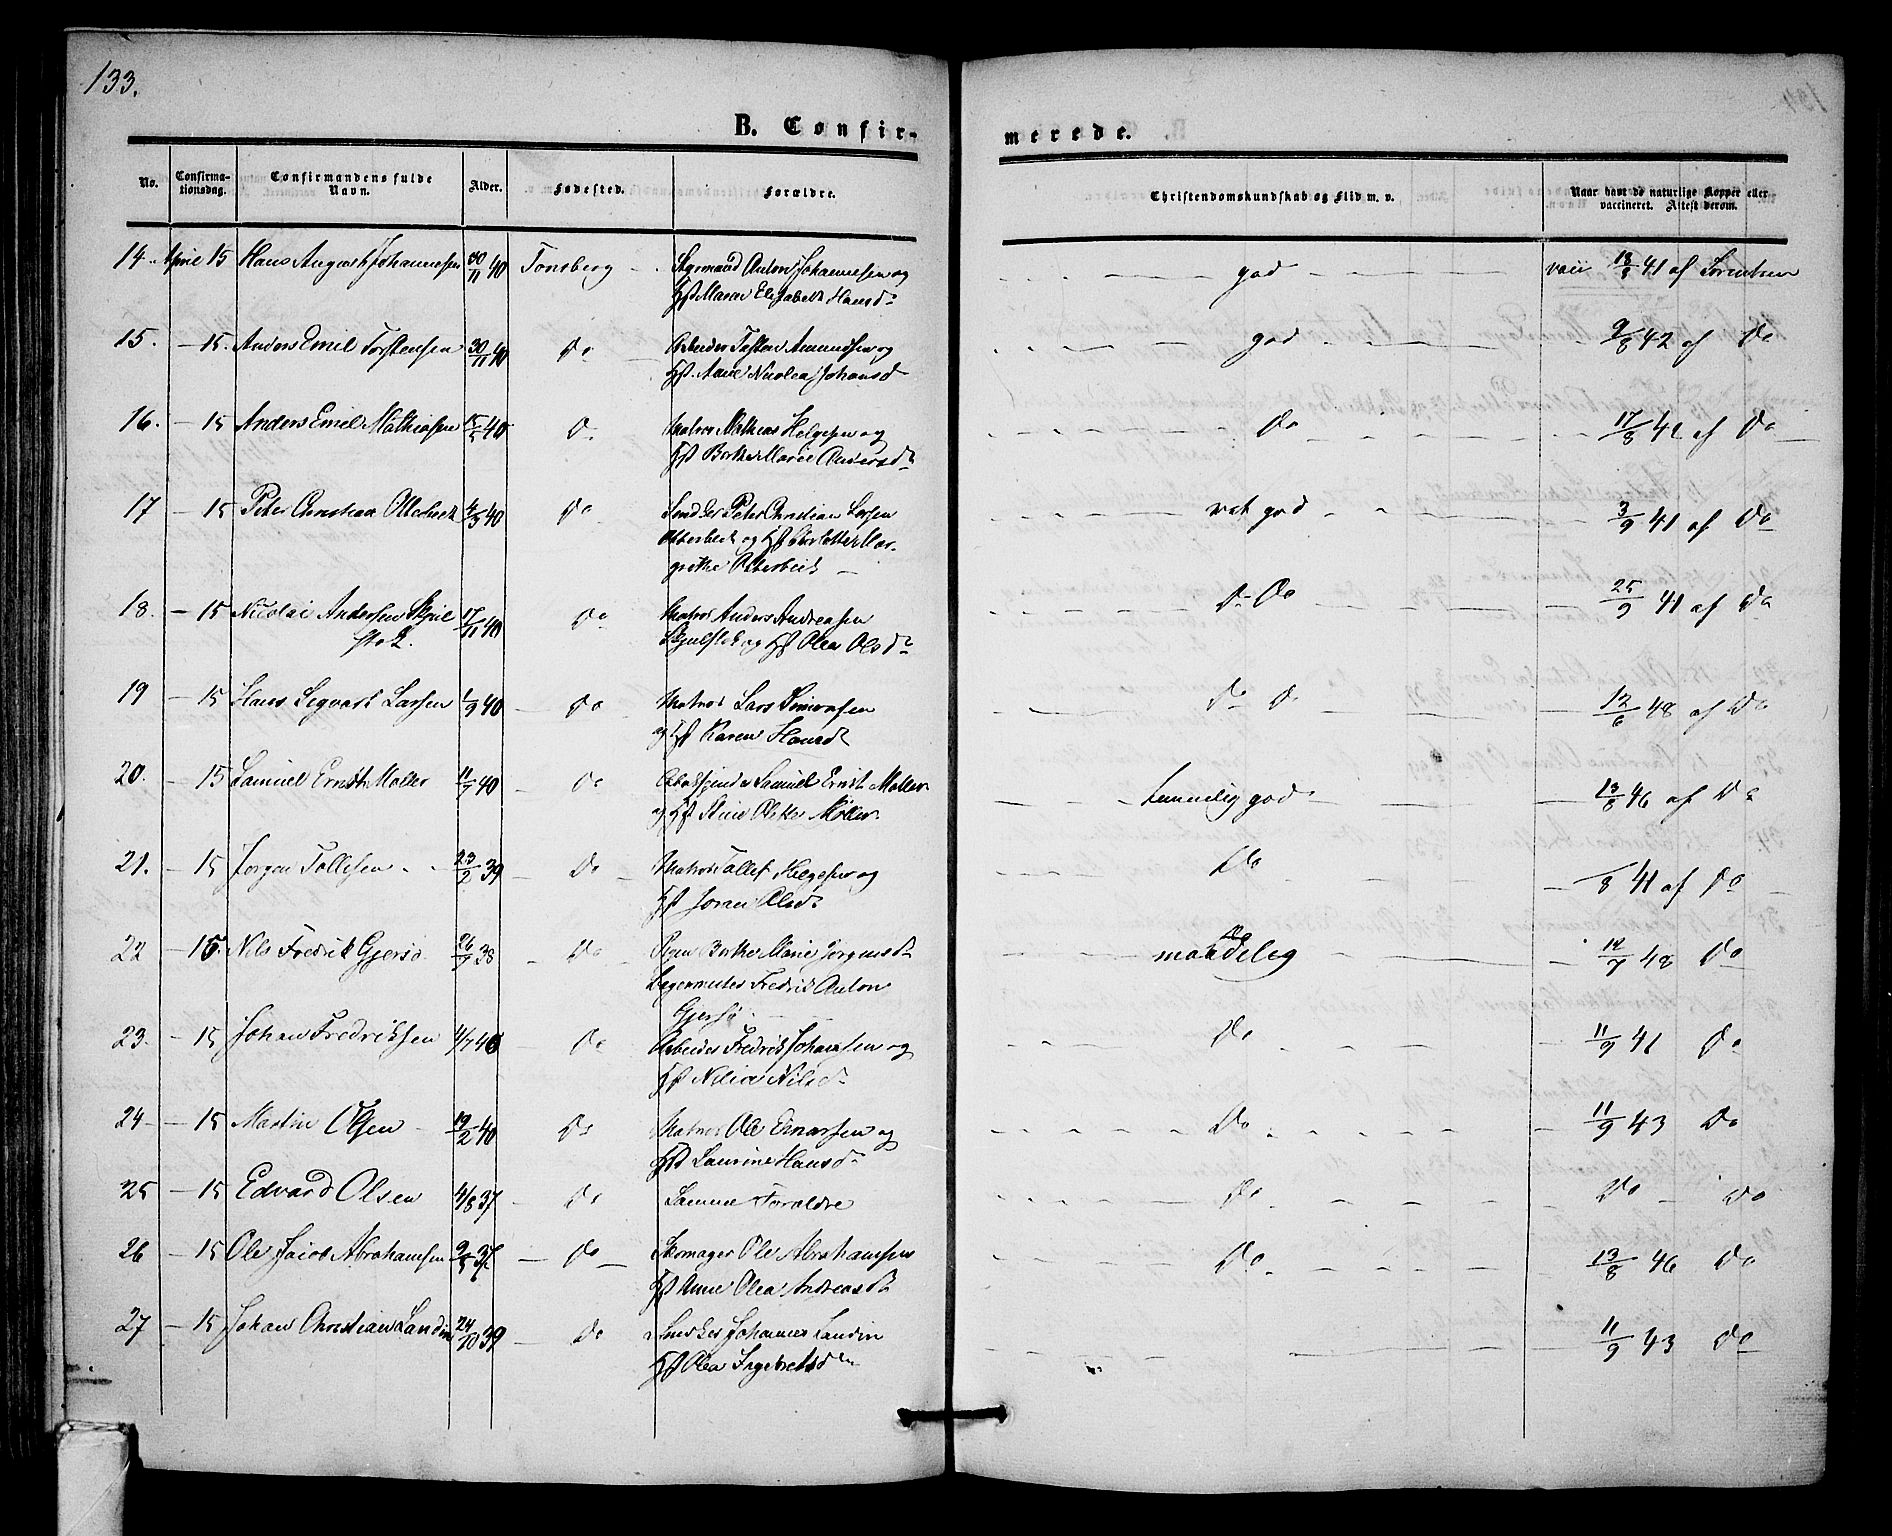 133.
B. Confir-
merede.
No.
Confirma-
tionsdag.
Confirmandens fulde
Navn.
Alder.
Fødested.
Forældre.
Christendomskundskab og Flid m. v.
Naar havt de naturlige Kopper eller
vaccineret. Attest derom.
14. April 15 Hans August Johannesen 30/11 40 Tønsberg Styrmand Anton Johannesen og god 18/8 41 af Sørensen
Hst Maren Elisabeth Hansdr
15. 15. Anders Emil Torstensen 30/11 40 Do Arbeider Tosten Amundsen og god 9/8 42 af Do
Hst. Anne Nicolea Johansd
16. 15 Anders Emil Mathiasen 15/5 40 Do Matros Mathias Helgesen og Do 17/8 42 af Do
Hst Berthe Marie Andersdr
17 15 Peter Christian Otterbeck 4/3 40 Do Smed Peter Christian Larsen vet god 3/9 41 af Do
Otterbeck og Hst Mar-
grethe Otterbeck
18. 15 Nicolai Andersen Skjel 17/11 40 Do Matros Anders Andreasen Do Do 25/9 41 af Do
Hst Olea Olsdr
19 15 Hans Segvart Larsen 1/9 40 Do Matros Lars Simensen Do Do 12/6 48 af Do
og Hst Karen Hansdr
20. 15 Samuel Ernst Møller 11/7 40 Do Samuel Ernst Møller temmelig god 13/8 46 af Do
og Hst Stine Olette Møller
21. 15 Jørgen Tollefsen 23/2 39 Do Matros Tollef Helgesen og Do /8 41 af Do
Hst Joran Olsdr
22 15. Nils Fredrik Gjersø 26/7 38 Do Pigen Berthe Marie Jørgensdr maadelig 12/7 48 Do
Fredrik Anton
Gjersø
23. 15 Johan Fredriksen 4/7 40 Do Arbeider Fredrik Johansen og Do 11/9 41 Do
Hst Nilia Nilsdr
24 15 Martin Olsen 19/2 40 Do Matros Ole Einarsen og Do 11/9 43 Do
Hst Laurine Hansdr
25 15 Edvard Olsen 4/8 37 Do Samme Forældre Do Do Do
26 15 Ole Jacob Abrahamsen 9/5 37 Do Skomager Ole Abrahamsen Do 13/8 46 Do
Hst Anne Olea Andreasdr
27 15 Johan Christian Landin 24/10 39 Do Johannes Landin 11/9 43 Do
Hst Olea Ingebretsd